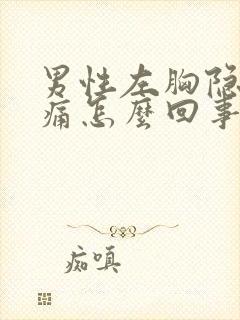 男性左胸隐
痛怎麼回事
痴嗔